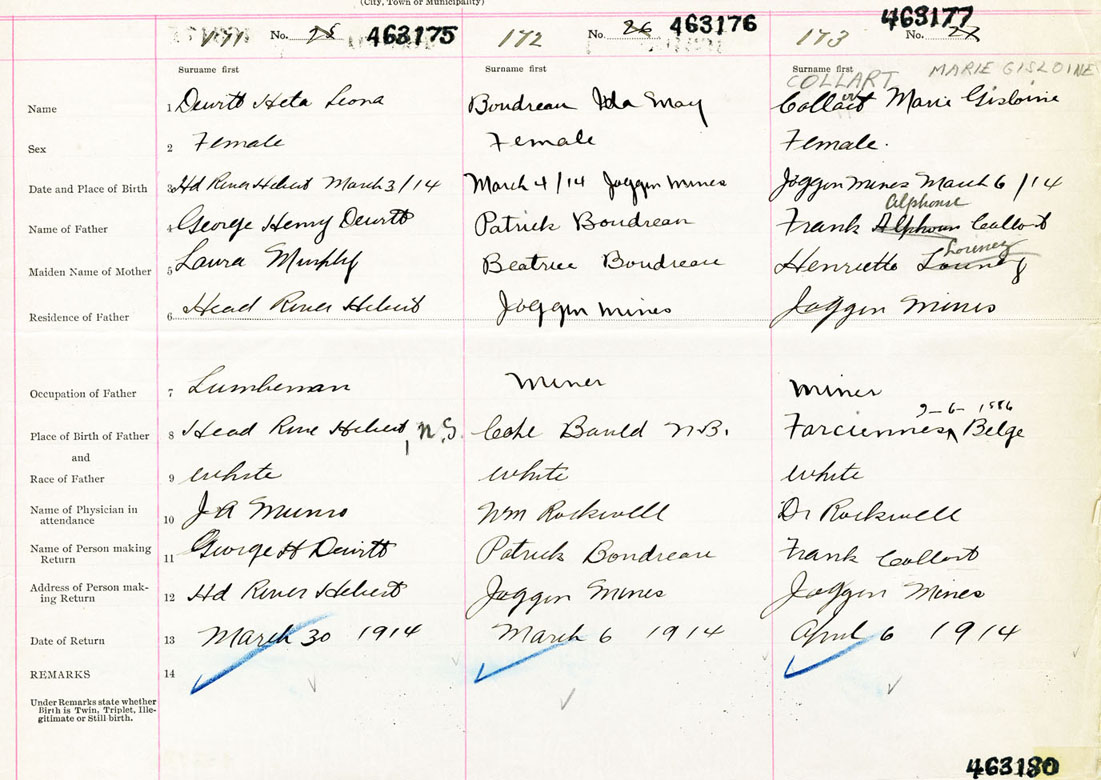 (City, Town or Municipality)
No. 25 463175
172 No. 26 463176
173 No. 27 463177
Surname first
Surname first
Surname first
COLLART MARIE GISLOINE
Name 1 Dewitt Heta Leona
Boudreau Ida May
Collart Marie Gisloine
Sex 2 Female
Female
Female.
Date and Place of Birth 3 Hd River Hebert March 3/14
March 4/14 Joggin Mines
Joggin Mines March 6/14
Alphonse
Name of Father 4 George Henry Dewitt
Patrick Boudreau
Frank Alphons Collart
Maiden Name of Mother 5 Laura Murphy
Beatrice Boudreau
Henrietta
Residence of Father 6 Head River Hebert
Joggin Mines
Joggin Mines
Occupation of Father 7 Lumberman
Miner
Miner
9-6-1886
Place of Birth of Father 8 Head River Hebert, N.S.
Cape Bauld N.B.
Farciennes Belge
and
Race of Father 9 White
White
White
Name of Physician in
attendance 10 J A Munro
Wm Rockwell
Dr Rockwell
Name of Person making
Return 11 George H Dewitt
Patrick Boudreau
Frank Collart
Address of Person mak-
ing Return 12 Hd River Hebert
Joggin Mines
Joggin Mines
Date of Return 13 March 30 1914
March 6 1914
April 6 1914
REMARKS 14
Under Remarks state whether
Birth is Twin, Triplet, Ille-
gitimate or Still birth.
463180